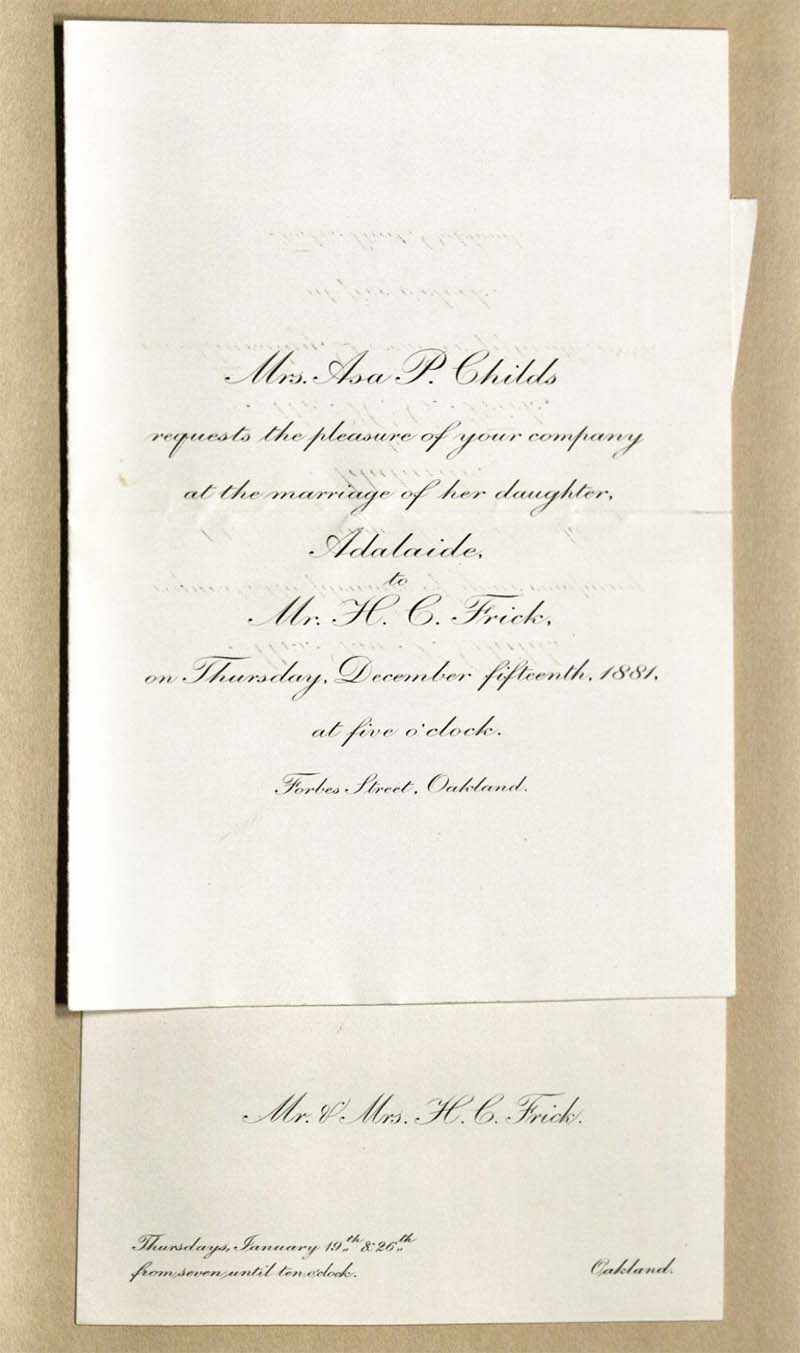 Mrs. Asa P. Childs
requests the pleasure of your company
at the marriage of her daughter,
Adalaide,
to
Mr. H. C. Frick,
on Thursday, December fifteenth, 1881,
at five o'clock.
Forbes Street, Oakland.
Mr. & Mrs. H. C. Frick.
Thursdays, January 19th & 26th
from seven until ten o'clock.
Oakland.